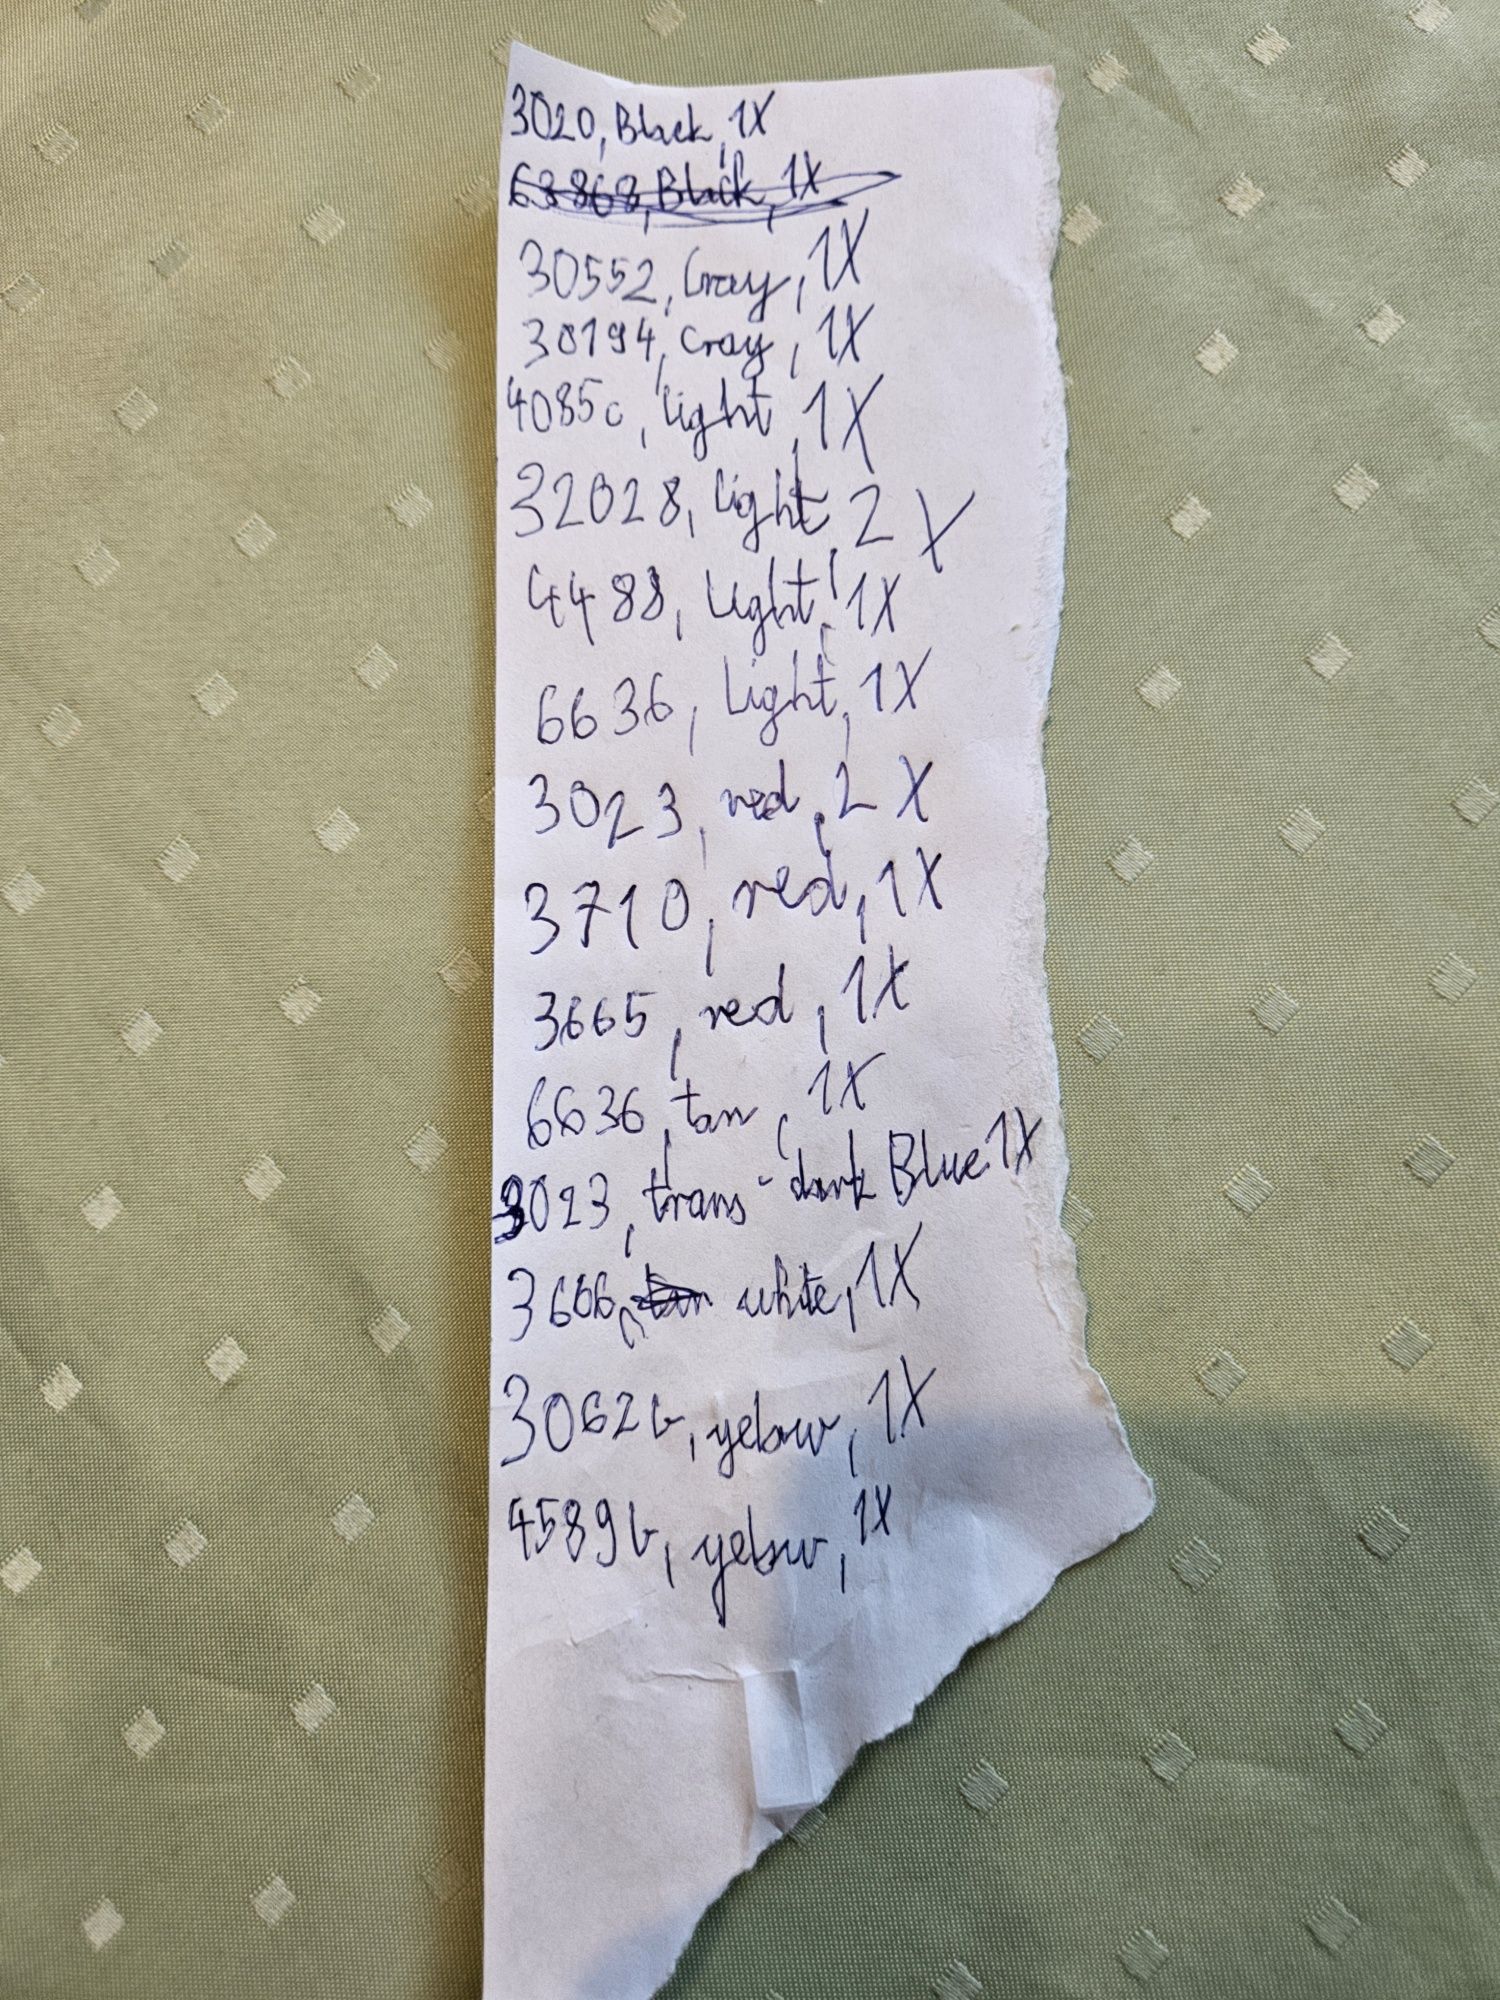 3020, Black, 1X
63868, Black, 1X
30552, Gray, 1X
30194, Gray, 1X
4085c, light, 1X
32028, light, 2X
4488, Light, 1X
6636, Light, 1X
3023, red, 2X
3710, red, 1X
3665, red, 1X
6636, tan, 1X
3023, trans-dark Blue 1X
3666, white, 1X
3062b, yelow, 1X
4589b, yelow, 1X